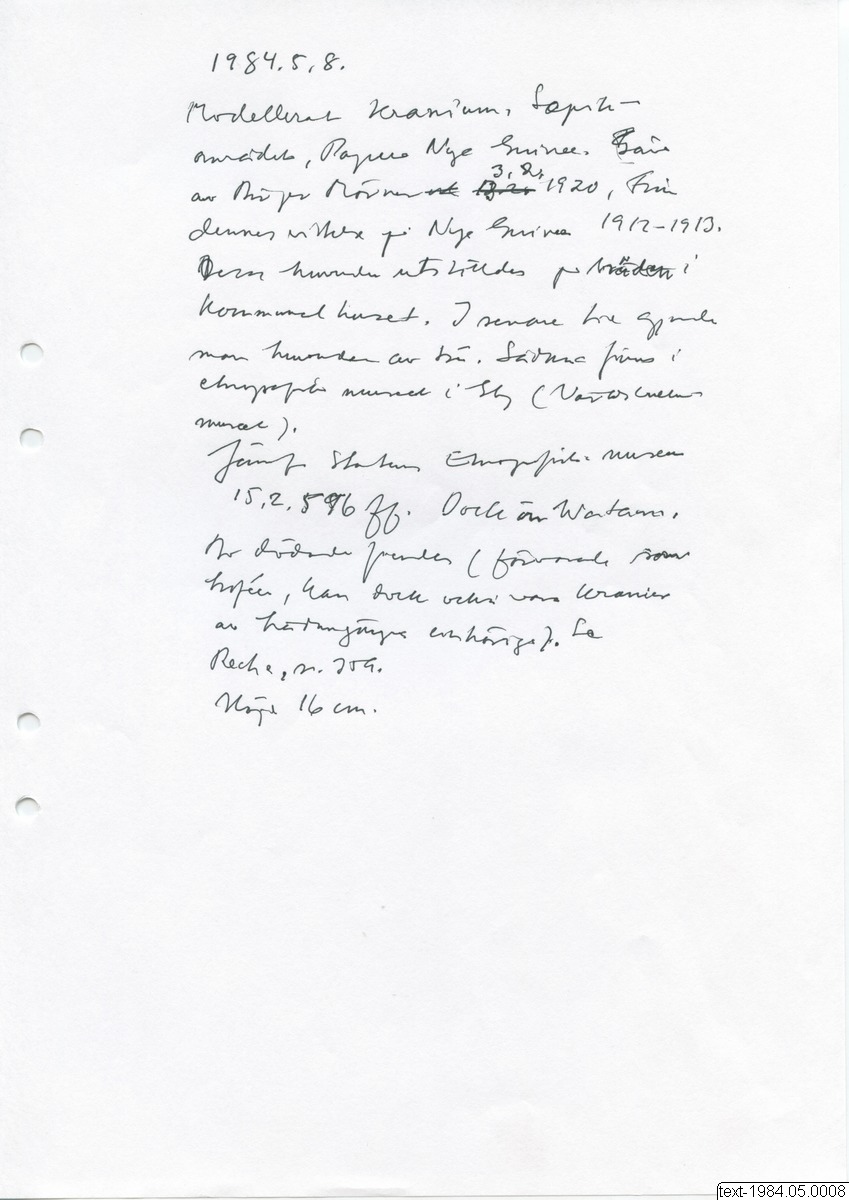 1984.5.8.
Modellerat kranium. Sepik-
området, Papua Nya Guinea. Gåva
av Birger Mörner 3.2. 1920, från
dennes vistelse på Nya Guinea 1912-1913.
Dessa huvuden utställdes på bräden i
kommunalhuset. I senare tid gjorde
man huvuden av trä. Sådana finns i
etnografiska museet i Sthlm (Världskulturmuseet).
Jämför Statens Etnografiska museum
15.2.596 ff. Dock
Av dödade fiender (förvarade som
troféer, kan dock också vara kranier
av hädangångna anhöriga). Se
Reche, s. 359.
Höjd 16 cm.
text-1984.05.0008